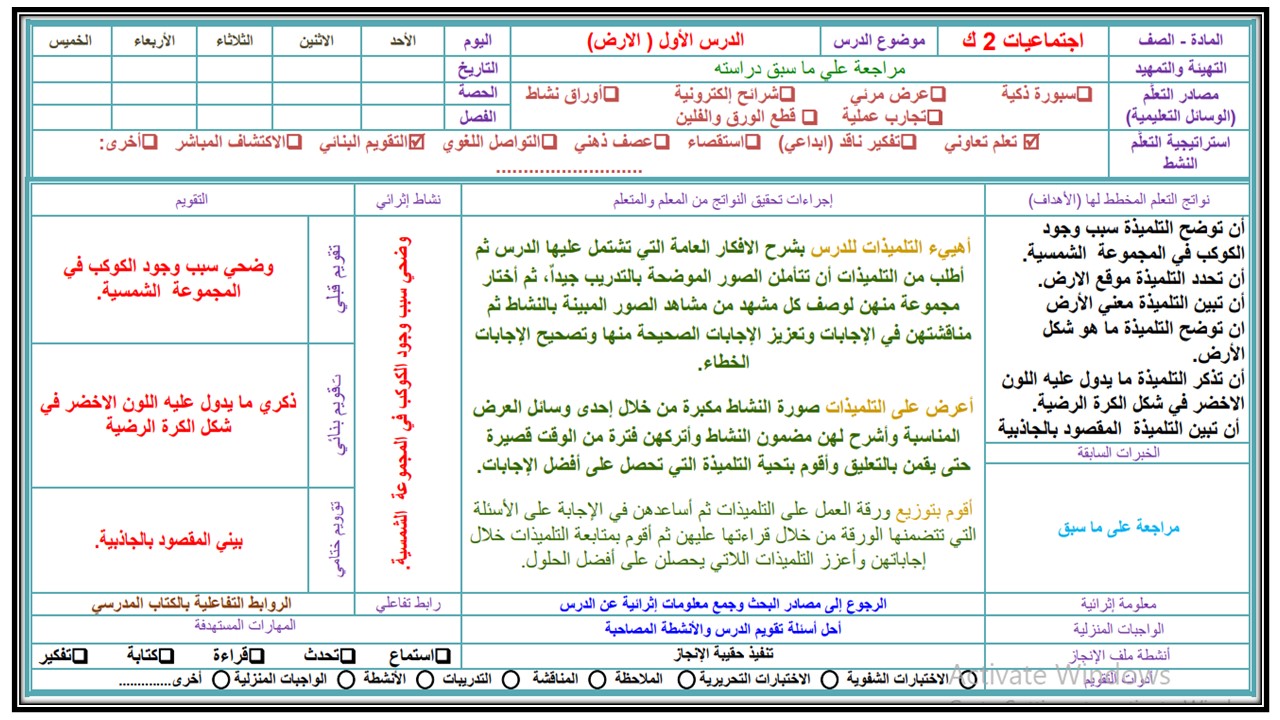 المادة - الصف
اجتماعيات 2 ك
موضوع الدرس
الدرس الأول ( الارض)
اليوم
الأحد
الاثنين
الثلاثاء
الأربعاء
الخميس
التهيئة والتمهيد
مراجعة علي ما سبق دراسته
التاريخ
مصادر التعلّم
(الوسائل التعليمية)
❑سبورة ذكية ❑عرض مرئي ❑شرائح إلكترونية ❑أوراق نشاط
❑تجارب عملية ❑ قطع الورق والفلين
الحصة
الفصل
استراتيجية التعلّم
النشط
☑ تعلم تعاوني ❑تفكير ناقد (ابداعي) ❑استقصاء ❑عصف ذهني ❑التواصل اللغوي ☑التقويم البنائي ❑الاكتشاف المباشر ❑أخرى:
...........................
نواتج التعلم المخطط لها (الأهداف)
إجراءات تحقيق النواتج من المعلم والمتعلم
نشاط إثرائي
التقويم
أن توضح التلميذة سبب وجود
الكوكب في المجموعة الشمسية.
أن تحدد التلميذة موقع الارض.
أن تبين التلميذة معني الأرض
ان توضح التلميذة ما هو شكل
الأرض.
أن تذكر التلميذة ما يدول عليه اللون
الاخضر في شكل الكرة الرضية.
أن تبين التلميذة المقصود بالجاذبية
الخبرات السابقة
مراجعة على ما سبق
أهييء التلميذات للدرس بشرح الافكار العامة التي تشتمل عليها الدرس ثم
أطلب من التلميذات أن تتأملن الصور الموضحة بالتدريب جيداً، ثم أختار
مجموعة منهن لوصف كل مشهد من مشاهد الصور المبينة بالنشاط ثم
مناقشتهن في الإجابات وتعزيز الإجابات الصحيحة منها وتصحيح الإجابات
الخطاء.
أعرض على التلميذات صورة النشاط مكبرة من خلال إحدى وسائل العرض
المناسبة وأشرح لهن مضمون النشاط وأتركهن فترة من الوقت قصيرة
حتى يقمن بالتعليق وأقوم بتحية التلميذة التي تحصل على أفضل الإجابات.
أقوم بتوزيع ورقة العمل على التلميذات ثم أساعدهن في الإجابة على الأسئلة
التي تتضمنها الورقة من خلال قراءتها عليهن ثم أقوم بمتابعة التلميذات خلال
إجاباتهن وأعزز التلميذات اللاتي يحصلن على أفضل الحلول.
وضحي سبب وجود الكوكب في المجموعة الشمسية.
تقويم قبلي
وضحي سبب وجود الكوكب في
المجموعة الشمسية.
تقويم بنائي
ذكري ما يدول عليه اللون الاخضر في
شكل الكرة الرضية
تقويم ختامي
بيني المقصود بالجاذبية.
معلومة إثرائية
الرجوع إلى مصادر البحث وجمع معلومات إثرائية عن الدرس
رابط تفاعلي
الروابط التفاعلية بالكتاب المدرسي
الواجبات المنزلية
أحل أسئلة تقويم الدرس والأنشطة المصاحبة
المهارات المستهدفة
أنشطة ملف الإنجاز
تنفيذ حقيبة الإنجاز
❑استماع ❑تحدث ❑قراءة ❑كتابة ❑تفكير
أدوات التقويم
○ الاختبارات الشفوية ○ الاختبارات التحريرية ○ الملاحظة ○ المناقشة ○ التدريبات ○ الأنشطة ○ الواجبات المنزلية ○ أخرى..............
Activate Windows